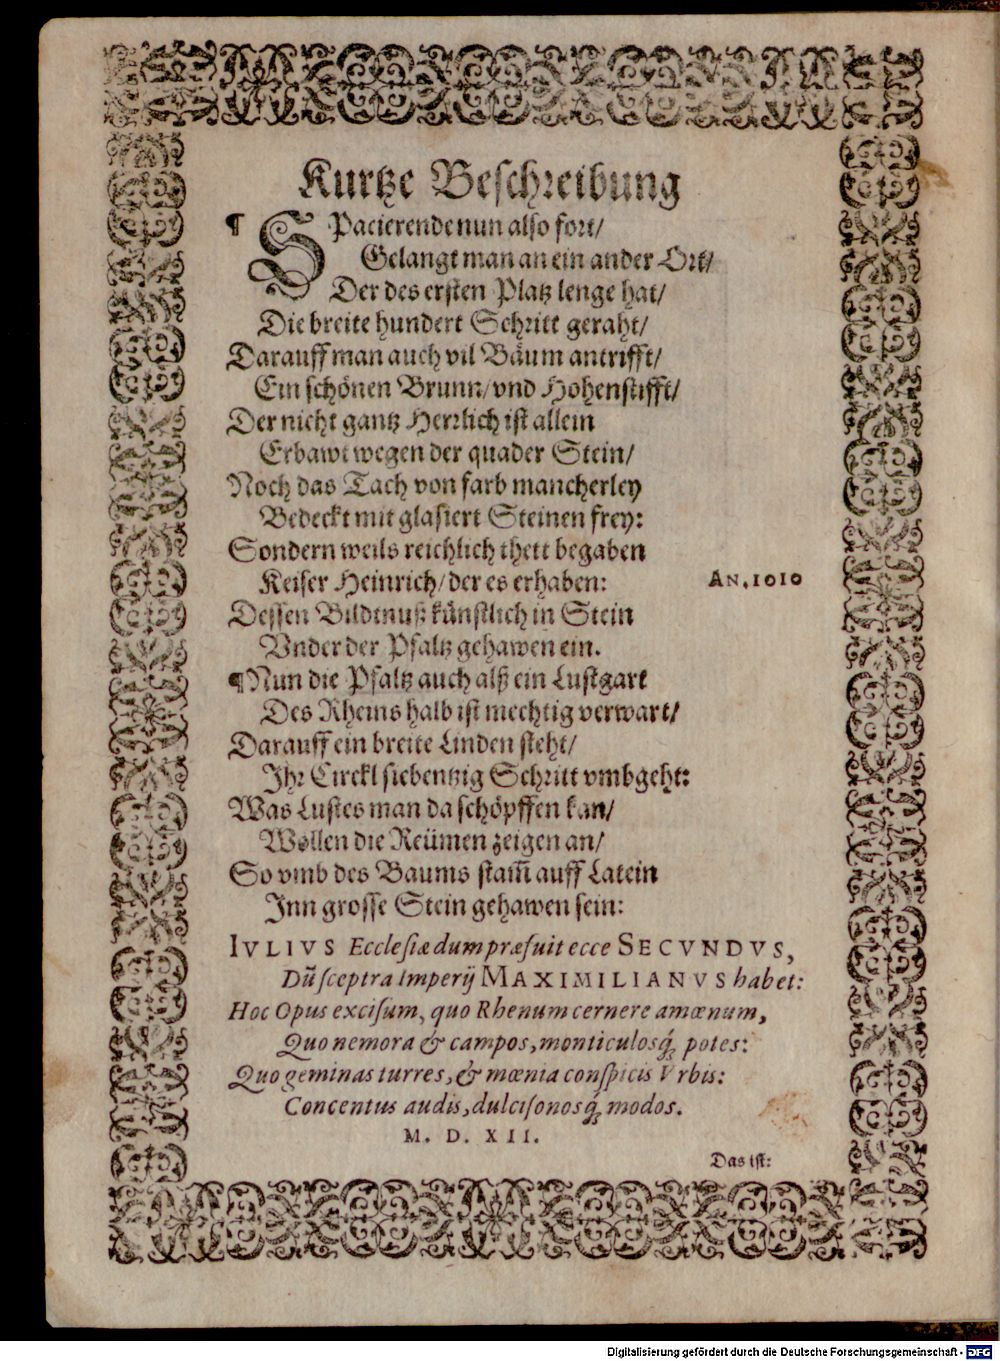 Kurtze Beschreibung
¶ SPacierende nun also fort/
Gelangt man an ein ander Ort/
Der des ersten Platz lenge hat/
Die breite hundert Schritt geraht/
Darauff man auch vil Bäum antrifft/
Ein schönen Brunn/ vnd Hohenstifft/
Der nicht gantz Herrlich ist allein
Erbawt wegen der quader Stein/
Noch das Tach von farb mancherley
Bedeckt mit glasiert Steinen frey:
Sondern weils reichlich thett begaben
Keiser Heinrich/ der es erhaben: AN. 1010
Dessen Bildtnuß künstlich in Stein
Vnder der Pfaltz gehawen ein.
¶ Nun die Pfaltz auch alß ein Lustgart
Des Rheins halb ist mechtig verwart/
Darauff ein breite Linden steht/
Ihr Circkl siebentzig Schritt vmbgeht:
Was Lustes man da schöpffen kan/
Wöllen die Reümen zeigen an/
So vmb des Baums stam̃ auff Latein
Inn grosse Stein gehawen sein:
IVLIVS Ecclesiæ dum præfuit ecce SECVNDVS,
Dũ sceptra Imperij MAXIMILIANVS habet:
Hoc Opus excisum, quo Rhenum cernere amœnum,
Quo nemora & campos, monticulosq́; potes:
Quo geminas turres, & mœnia conspicis Vrbis:
Concentus audis, dulcisonosq́; modos.
M. D. XII.
Das ist:
Digitalisierung gefördert durch die Deutsche Forschungsgemeinschaft - DFG